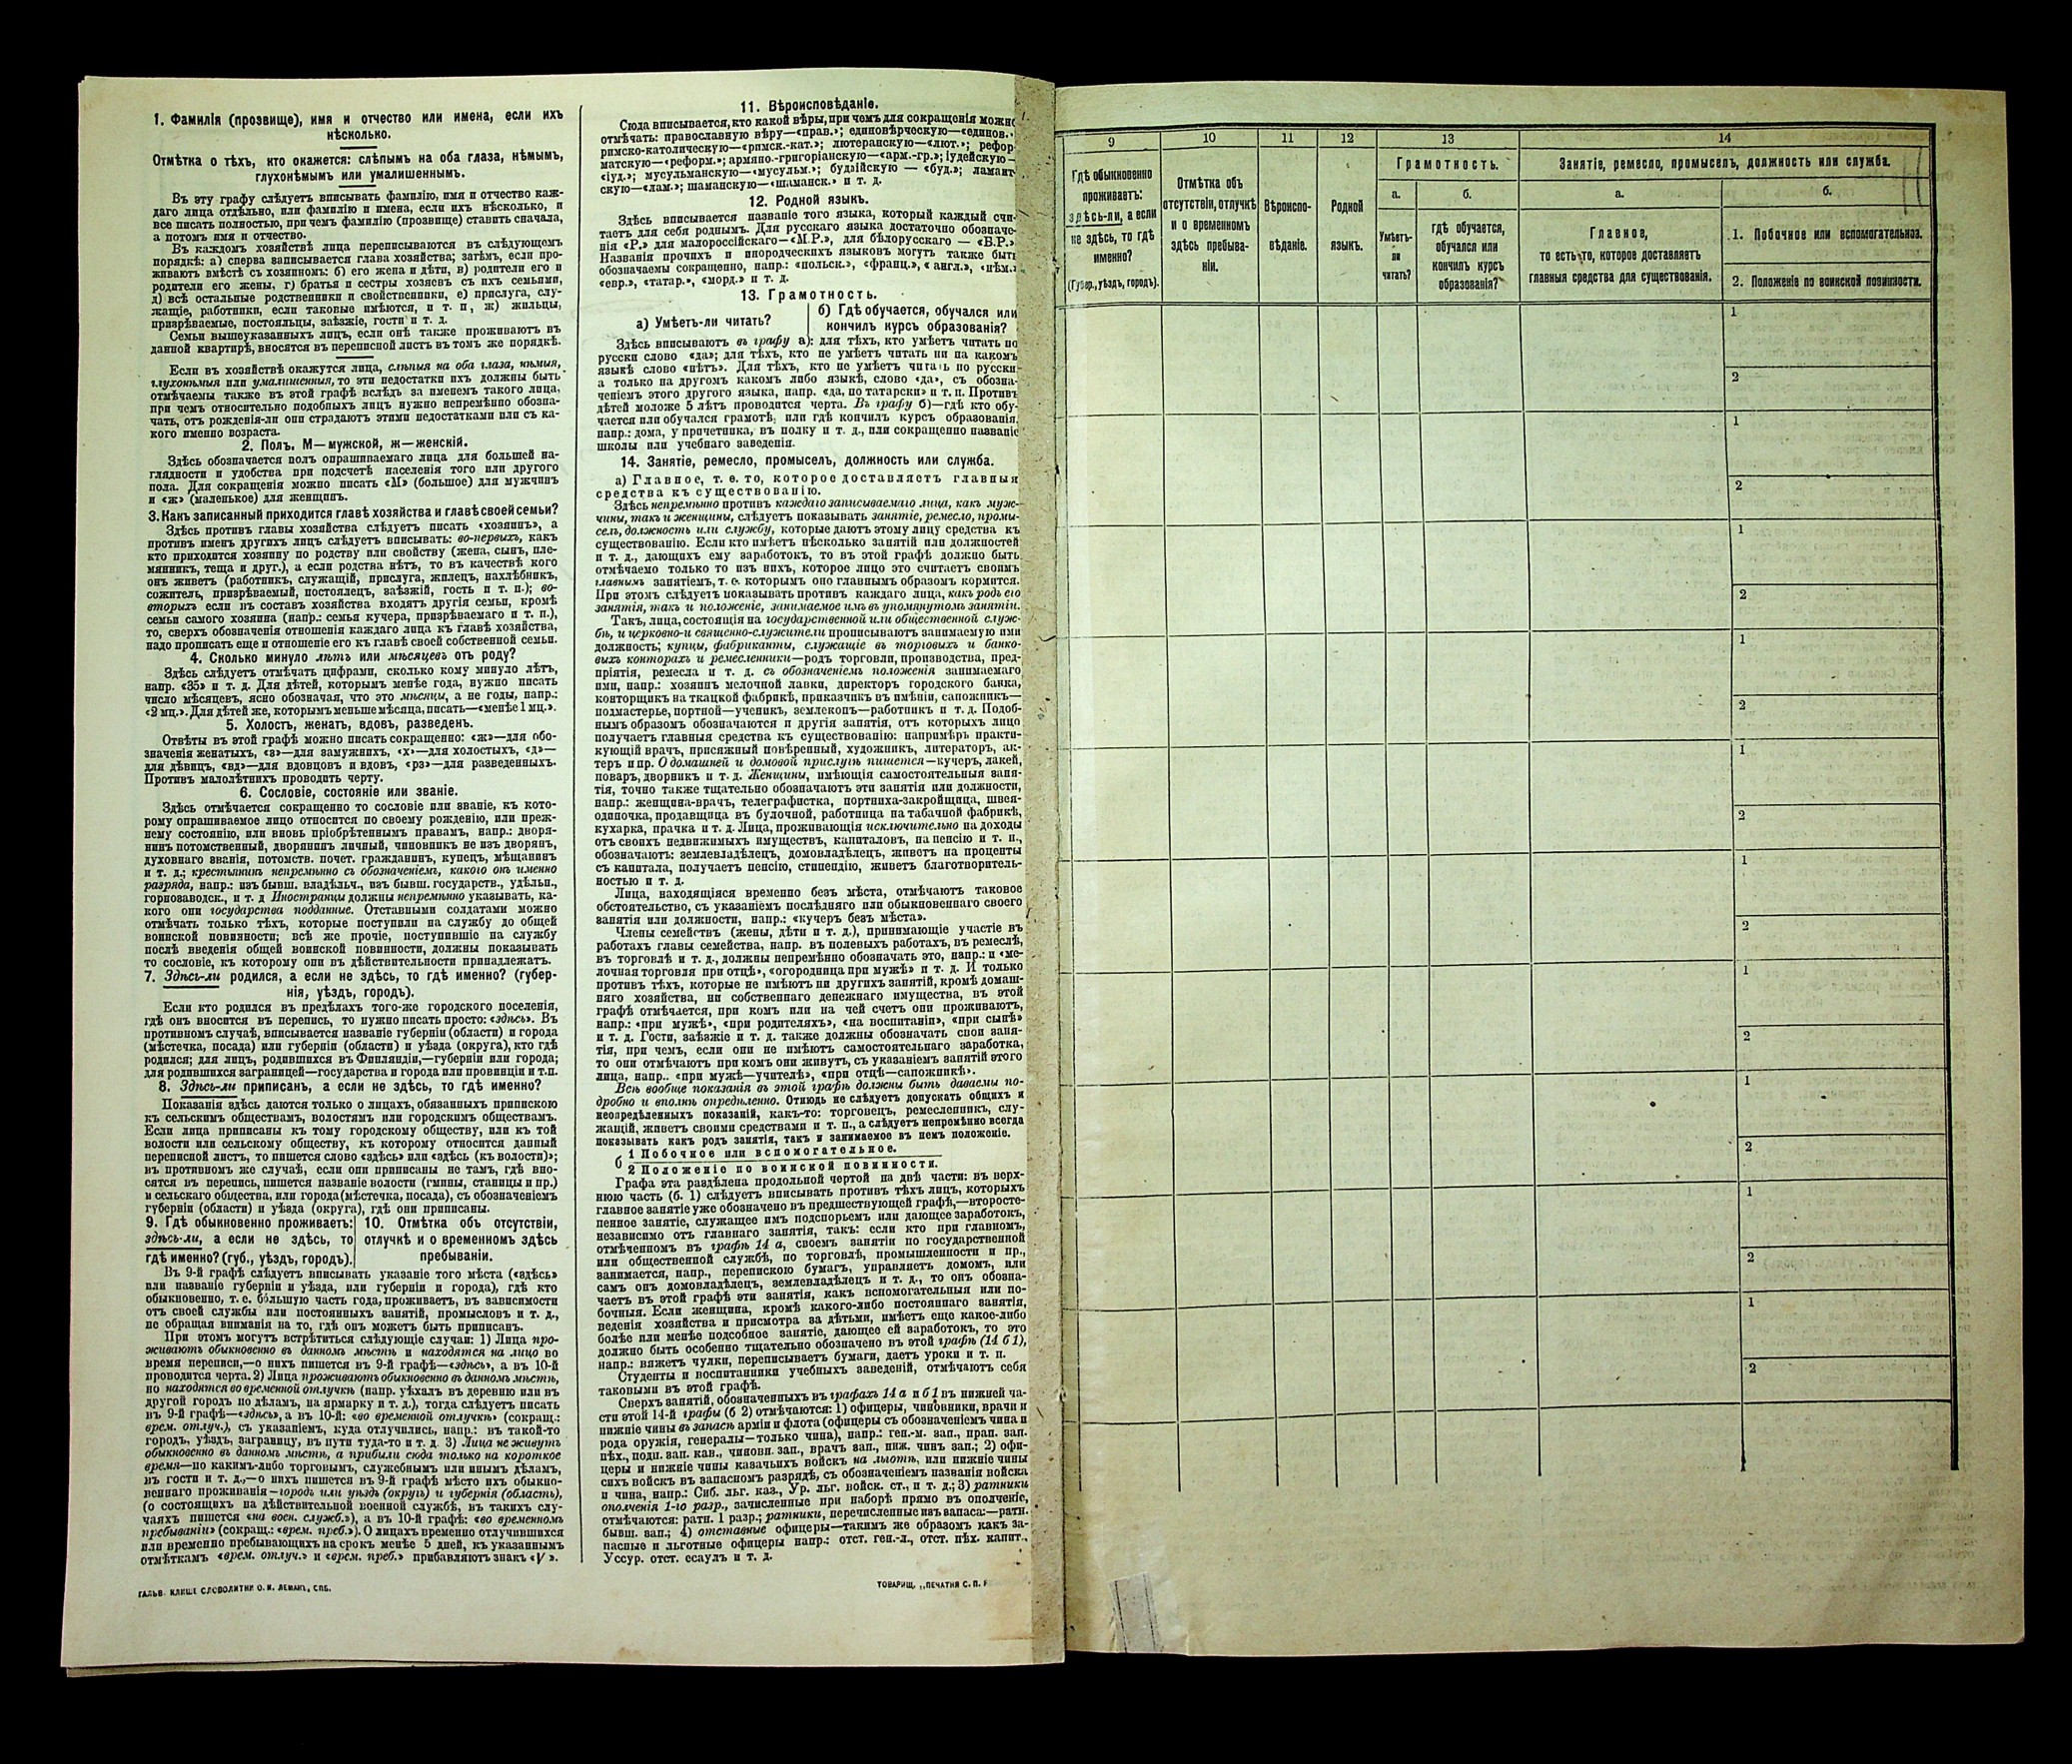 1. Фамилія (прозвище), имя и отчество или имена, если ихъ
нѣсколько.
Отмѣтка о тѣхъ, кто окажется: слѣпымъ на оба глаза, нѣмымъ,
глухонѣмымъ или умалишеннымъ.
Въ эту графу слѣдуетъ вписывать фамилію, имя и отчество каж-
даго лица отдѣльно, или фамилію и имена, если ихъ нѣсколько, и
все писать полностью, при чемъ фамилію (прозвище) ставить сначала,
а потомъ имя и отчество.
Въ каждомъ хозяйствѣ лица переписываются въ слѣдующемъ
порядкѣ: а) сперва записывается глава хозяйства; затѣмъ, если про-
живаютъ вмѣстѣ съ хозяиномъ: б) его жена и дѣти, в) родители его и
родители его жены, г) братья и сестры хозяевъ съ ихъ семьями,
д) всѣ остальные родственники и свойственники, е) прислуга, слу-
жащіе, работники, если таковые имѣются, и т. п, ж) жильцы,
призрѣваемые, постояльцы, заѣзжіе, гости и т. д.
Семьи вышеуказанныхъ лицъ, если онѣ также проживаютъ въ
данной квартирѣ, вносятся въ переписной листъ въ томъ же порядкѣ.
Если въ хозяйствѣ окажутся лица, слѣпыя на оба глаза, нѣмыя,
глухонѣмыя или умалишенныя, то эти недостатки ихъ должны быть
отмѣчаемы также въ этой графѣ вслѣдъ за именемъ такого лица,
при чемъ относительно подобныхъ лицъ нужно непремѣнно обозна-
чать, отъ рожденія-ли они страдаютъ этими недостатками или съ ка-
кого именно возраста.
2. Полъ, М—мужской, ж—женскій.
Здѣсь обозначается полъ опрашиваемаго лица для большей на-
глядности и удобства при подсчетѣ населенія того или другого
пола. Для сокращенія можно писать «М» (большое) для мужчинъ
и «ж» (маленькое) для женщинъ.
3. Какъ записанный приходится главѣ хозяйства и главѣ своей семьи?
Здѣсь противъ главы хозяйства слѣдуетъ писать «хозяинъ», а
противъ именъ другихъ лицъ слѣдуетъ вписывать: во-первыхъ, какъ
кто приходится хозяину по родству или свойству (жена, сынъ, пле-
мянникъ, теща и друг.), а если родства нѣтъ, то въ качествѣ кого
онъ живетъ (работникъ, служащій, прислуга, жилецъ, нахлѣбникъ,
сожитель, призрѣваемый, постоялецъ, заѣзжій, гость и т. п.); во-
вторыхъ если въ составъ хозяйства входятъ другія семьи, кромѣ
семьи самого хозяина (напр.: семья кучера, призрѣваемаго и т. п.),
то, сверхъ обозначенія отношенія каждаго лица къ главѣ хозяйства,
надо прописать еще и отношеніе его къ главѣ своей собственной семьи.
4. Сколько минуло лѣтъ или мѣсяцевъ отъ роду?
Здѣсь слѣдуетъ отмѣчать цифрами, сколько кому минуло лѣтъ,
напр. «35» и т. д. Для дѣтей, которымъ менѣе года, нужно писать
число мѣсяцевъ, ясно обозначая, что это мѣсяцы, а не годы, напр.:
«2 мц.». Для дѣтей же, которымъ меньше мѣсяца, писать—«менѣе 1 мц.».
5. Холостъ, женатъ, вдовъ, разведенъ.
Отвѣты въ этой графѣ можно писать сокращенно: «ж»—для обо-
значенія женатыхъ, «з»—для замужнихъ, «х»—для холостыхъ, «д»—
для дѣвицъ, «вд»—для вдовцовъ и вдовъ, «рз»—для разведенныхъ.
Противъ малолѣтнихъ проводить черту.
6. Сословіе, состояніе или званіе.
Здѣсь отмѣчается сокращенно то сословіе или званіе, къ кото-
рому опрашиваемое лицо относится по своему рожденію, или преж-
нему состоянію, или вновь пріобрѣтеннымъ правамъ, напр.: дворя-
нинъ потомственный, дворянинъ личный, чиновникъ не изъ дворянъ,
духовнаго званія, потомств. почет. гражданинъ, купецъ, мѣщанинъ
и т. д.; крестьянинъ непремѣнно съ обозначеніемъ, какого онъ именно
разряда, напр.: изъ бывш. владѣльч., изъ бывш. государств., удѣльн.,
горнозаводск., и т. д Иностранцы должны непремѣнно указывать, ка-
кого они государства подданные. Отставными солдатами можно
отмѣчать только тѣхъ, которые поступили на службу до общей
воинской повинности; всѣ же прочіе, поступившіе на службу
послѣ введенія общей воинской повинности, должны показывать
то сословіе, къ которому они въ дѣйствительности принадлежатъ.
7. Здѣсь-ли родился, а если не здѣсь, то гдѣ именно? (губер-
нія, уѣздъ, городъ).
Если кто родился въ предѣлахъ того-же городского поселенія,
гдѣ онъ вносится въ перепись, то нужно писать просто: «здѣсь». Въ
противномъ случаѣ, вписывается названіе губерніи (области) и города
(мѣстечка, посада) или губерніи (области) и уѣзда (округа), кто гдѣ
родился; для лицъ, родившихся въ Финляндіи,—губерніи или города;
для родившихся заграницей—государства и города или провинціи и т.п.
8. Здѣсь-ли приписанъ, а если не здѣсь, то гдѣ именно?
Показанія здѣсь даются только о лицахъ, обязанныхъ припискою
къ сельскимъ обществамъ, волостямъ или городскимъ обществамъ.
Если лица приписаны къ тому городскому обществу, или къ той
волости или сельскому обществу, къ которому относится данный
переписной листъ, то пишется слово «здѣсь» или «здѣсь (къ волости)»;
въ противномъ же случаѣ, если они приписаны не тамъ, гдѣ вно-
сятся въ перепись, пишется названіе волости (гмины, станицы и пр.)
и сельскаго общества, или города (мѣстечка, посада), съ обозначеніемъ
губерніи (области) и уѣзда (округа), гдѣ они приписаны.
9. Гдѣ обыкновенно проживаетъ:
здѣсь-ли, а если не здѣсь, то
гдѣ именно? (губ., уѣздъ, городъ).
10. Отмѣтка объ отсутствіи,
отлучкѣ и о временномъ здѣсь
пребываніи.
Въ 9-й графѣ слѣдуетъ вписывать указаніе того мѣста («здѣсь»
или названіе губерніи и уѣзда, или губерніи и города), гдѣ кто
обыкновенно, т. е. бо́льшую часть года, проживаетъ, въ зависимости
отъ своей службы или постоянныхъ занятій, промысловъ и т. д.,
не обращая вниманія на то, гдѣ онъ можетъ быть приписанъ.
При этомъ могутъ встрѣтиться слѣдующіе случаи: 1) Лица про-
живаютъ обыкновенно въ данномъ мѣстѣ и находятся на лицо во
время переписи,—о нихъ пишется въ 9-й графѣ—«здѣсь», а въ 10-й
проводится черта. 2) Лица проживаютъ обыкновенно въ данномъ мѣстѣ,
но находятся во временной отлучкѣ (напр. уѣхалъ въ деревню или въ
другой городъ по дѣламъ, на ярмарку и т. д.), тогда слѣдуетъ писать
въ 9-й графѣ—«здѣсь», а въ 10-й: «во временной отлучкѣ» (сокращ.:
врем. отлуч.), съ указаніемъ, куда отлучились, напр.: въ такой-то
городъ, уѣздъ, заграницу, въ пути туда-то и т. д. 3) Лица не живутъ
обыкновенно въ данномъ мѣстѣ, а прибыли сюда только на короткое
время—по какимъ-либо торговымъ, служебнымъ или инымъ дѣламъ,
въ гости и т. д.,—о нихъ пишется въ 9-й графѣ мѣсто ихъ обыкно-
веннаго проживанія—городъ или уѣздъ (округъ) и губернія (область),
(о состоящихъ на дѣйствительной военной службѣ, въ такихъ слу-
чаяхъ пишется «на воен. служб.»), а въ 10-й графѣ: «во временномъ
пребываніи» (сокращ.: «врем. преб.»). О лицахъ временно отлучившихся
или временно пребывающихъ на срокъ менѣе 5 дней, къ указаннымъ
отмѣткамъ «врем. отлуч.» и «врем. преб.» прибавляютъ знакъ «V».
ГАЛЬВ. КЛИШЕ СЛОВОЛИТНИ О. И. ЛЕМАНЪ, СПБ.
11. Вѣроисповѣданіе.
Сюда вписывается, кто какой вѣры, при чемъ для сокращенія можно
отмѣчать: православную вѣру—«прав.»; единовѣрческую—«единов.»
римско-католическую—«римск.-кат.»; лютеранскую—«лют.»; рефор-
матскую—«реформ.»; армяно-григоріанскую—«арм.-гр.»; іудейскую—
«іуд.»; мусульманскую—«мусульм.»; буддійскую — «буд.»; ламаит-
скую—«лам.»; шаманскую—«шаманск.» и т. д.
12. Родной языкъ.
Здѣсь вписывается названіе того языка, который каждый счи-
таетъ для себя роднымъ. Для русскаго языка достаточно обозначе-
нія «Р.» для малороссійскаго—«М.Р.», для бѣлорусскаго — «Б.Р.»
Названія прочихъ и инородческихъ языковъ могутъ также быть
обозначаемы сокращенно, напр.: «польск.», «франц.», «англ.», «нѣм.»
«евр.», «татар.», «морд.» и т. д.
13. Грамотность.
а) Умѣетъ-ли читать?
б) Гдѣ обучается, обучался или
кончилъ курсъ образованія?
Здѣсь вписываютъ въ графу а): для тѣхъ, кто умѣетъ читать по
русски слово «да»; для тѣхъ, кто не умѣетъ читать ни на какомъ
языкѣ слово «нѣтъ». Для тѣхъ, кто не умѣетъ читать по русски
а только на другомъ какомъ либо языкѣ, слово «да», съ обозна-
ченіемъ этого другого языка, напр. «да, по татарски» и т. п. Противъ
дѣтей моложе 5 лѣтъ проводится черта. Въ графу б)—гдѣ кто обу-
чается или обучался грамотѣ, или гдѣ кончилъ курсъ образованія,
напр.: дома, у причетника, въ полку и т. д., или сокращенно названіе
школы или учебнаго заведенія.
14. Занятіе, ремесло, промыселъ, должность или служба.
а) Главное, т. е. то, которое доставляетъ главныя
средства къ существованію.
Здѣсь непремѣнно противъ каждаго записываемаго лица, какъ муж-
чины, такъ и женщины, слѣдуетъ показывать занятіе, ремесло, промы-
селъ, должность или службу, которые даютъ этому лицу средства къ
существованію. Если кто имѣетъ нѣсколько занятій или должностей
и т. д., дающихъ ему заработокъ, то въ этой графѣ должно быть
отмѣчаемо только то изъ нихъ, которое лицо это считаетъ своимъ
главнымъ занятіемъ, т. е. которымъ оно главнымъ образомъ кормится.
При этомъ слѣдуетъ показывать противъ каждаго лица, какъ родъ его
занятія, такъ и положеніе, занимаемое имъ въ упомянутомъ занятіи.
Такъ, лица, состоящія на государственной или общественной служ-
бѣ, и церковно- и священно-служители прописываютъ занимаемую ими
должность; купцы, фабриканты, служащіе въ торговыхъ и банко-
выхъ конторахъ и ремесленники—родъ торговли, производства, пред-
пріятія, ремесла и т. д. съ обозначеніемъ положенія занимаемаго
ими, напр.: хозяинъ мелочной лавки, директоръ городского банка,
конторщикъ на ткацкой фабрикѣ, приказчикъ въ имѣніи, сапожникъ—
подмастерье, портной—ученикъ, землекопъ—работникъ и т. д. Подоб-
нымъ образомъ обозначаются и другія занятія, отъ которыхъ лицо
получаетъ главныя средства къ существованію: напримѣръ практи-
кующій врачъ, присяжный повѣренный, художникъ, литераторъ, ак-
теръ и пр. О домашней и домовой прислугѣ пишется—кучеръ, лакей,
поваръ, дворникъ и т. д. Женщины, имѣющія самостоятельныя заня-
тія, точно также тщательно обозначаютъ эти занятія или должности,
напр.: женщина-врачъ, телеграфистка, портниха-закройщица, швея-
одиночка, продавщица въ булочной, работница на табачной фабрикѣ,
кухарка, прачка и т. д. Лица, проживающія исключительно на доходы
отъ своихъ недвижимыхъ имуществъ, капиталовъ, на пенсію и т. п.,
обозначаютъ: землевладѣлецъ, домовладѣлецъ, живетъ на проценты
съ капитала, получаетъ пенсію, стипендію, живетъ благотворитель-
ностью и т. д.
Лица, находящіяся временно безъ мѣста, отмѣчаютъ таковое
обстоятельство, съ указаніемъ послѣдняго или обыкновеннаго своего
занятія или должности, напр.: «кучеръ безъ мѣста».
Члены семействъ (жены, дѣти и т. д.), принимающіе участіе въ
работахъ главы семейства, напр. въ полевыхъ работахъ, въ ремеслѣ,
въ торговлѣ и т. д., должны непремѣнно обозначать это, напр.: и «ме-
лочная торговля при отцѣ», «огородница при мужѣ» и т. д. И только
противъ тѣхъ, которые не имѣютъ ни другихъ занятій, кромѣ домаш-
няго хозяйства, ни собственнаго денежнаго имущества, въ этой
графѣ отмѣчается, при комъ или на чей счетъ они проживаютъ,
напр.: «при мужѣ», «при родителяхъ», «на воспитаніи», «при сынѣ»
и т. д. Гости, заѣзжіе и т. д. также должны обозначать свои заня-
тія, при чемъ, если они не имѣютъ самостоятельнаго заработка,
то они отмѣчаютъ при комъ они живутъ, съ указаніемъ занятій этого
лица, напр.. «при мужѣ—учителѣ», «при отцѣ—сапожникѣ».
Всѣ вообще показанія въ этой графѣ должны быть даваемы по-
дробно и вполнѣ опредѣленно. Отнюдь не слѣдуетъ допускать общихъ и
неопредѣленныхъ показаній, какъ-то: торговецъ, ремесленникъ, слу-
жащій, живетъ своими средствами и т. п., а слѣдуетъ непремѣнно всегда
показывать какъ родъ занятія, такъ и занимаемое въ немъ положеніе.
б
1 Побочное или вспомогательное.
2 Положеніе по воинской повинности.
Графа эта раздѣлена продольной чертой на двѣ части: въ верх-
нюю часть (б. 1) слѣдуетъ вписывать противъ тѣхъ лицъ, которыхъ
главное занятіе уже обозначено въ предшествующей графѣ,—второсте-
пенное занятіе, служащее имъ подспорьемъ или дающее заработокъ,
независимо отъ главнаго занятія, такъ: если кто при главномъ,
отмѣченномъ въ графѣ 14 а, своемъ занятіи по государственной
или общественной службѣ, по торговлѣ, промышленности и пр.,
занимается, напр., перепискою бумагъ, управляетъ домомъ, или
самъ онъ домовладѣлецъ, землевладѣлецъ и т. д., то онъ обозна-
чаетъ въ этой графѣ эти занятія, какъ вспомогательныя или по-
бочныя. Если женщина, кромѣ какого-либо постояннаго занятія,
веденія хозяйства и присмотра за дѣтьми, имѣетъ еще какое-либо
болѣе или менѣе подсобное занятіе, дающее ей заработокъ, то это
должно быть особенно тщательно обозначено въ этой графѣ (14 б 1),
напр.: вяжетъ чулки, переписываетъ бумаги, даетъ уроки и т. п.
Студенты и воспитанники учебныхъ заведеній, отмѣчаютъ себя
таковыми въ этой графѣ.
Сверхъ занятій, обозначенныхъ въ графахъ 14 а и б 1 въ нижней ча-
сти этой 14-й графы (б 2) отмѣчаются: 1) офицеры, чиновники, врачи и
нижніе чины въ запасѣ арміи и флота (офицеры съ обозначеніемъ чина и
рода оружія, генералы—только чина), напр.: ген.-м. зап., прап. зап.
пѣх., подп. зап. кав., чиновн. зап., врачъ зап., ниж. чинъ зап.; 2) офи-
церы и нижніе чины казачьихъ войскъ на льготѣ, или нижніе чины
сихъ войскъ въ запасномъ разрядѣ, съ обозначеніемъ названія войска
и чина, напр.: Сиб. льг. каз., Ур. льг. войск. ст., и т. д.; 3) ратники
ополченія 1-го разр., зачисленные при наборѣ прямо въ ополченіе,
отмѣчаются: ратн. 1 разр.; ратники, перечисленные изъ запаса:—ратн.
бывш. зап.; 4) отставные офицеры—такимъ же образомъ какъ за-
пасные и льготные офицеры напр.: отст. ген.-л., отст. пѣх. капит.,
Уссур. отст. есаулъ и т. д.
ТОВАРИЩ. „ПЕЧАТНЯ С. П.
9
10
11
12
13
14
Гдѣ обыкновенно
проживаетъ:
здѣсь-ли, а если
не здѣсь, то гдѣ
именно?
(Губер., уѣздъ, городъ).
Отмѣтка объ
отсутствіи, отлучкѣ
и о временномъ
здѣсь пребыва-
ніи.
Вѣроиспо-
вѣданіе.
Родной
языкъ.
Грамотность.
а.
Умѣетъ-
ли
читать?
б.
гдѣ обучается,
обучался или
кончилъ курсъ
образованія?
Занятіе, ремесло, промыселъ, должность или служба.
а.
Главное,
то есть то, которое доставляетъ
главныя средства для существованія.
б.
1. Побочное или вспомогательное.
2. Положеніе по воинской повинности.
1
2
1
2
1
2
1
2
1
2
1
2
1
2
1
2
1
2
1
2